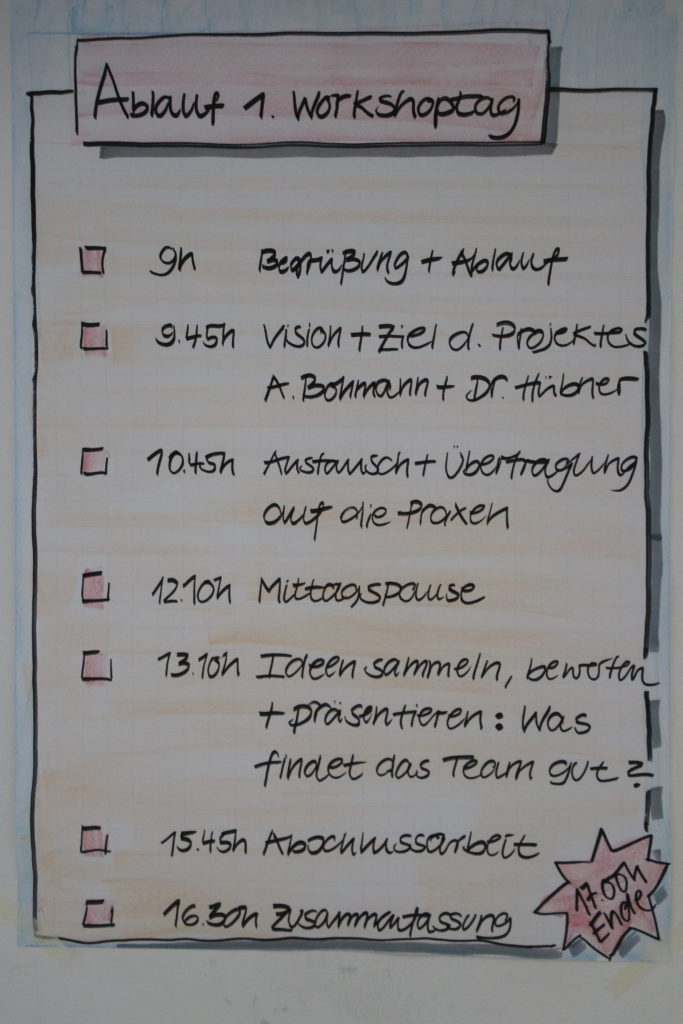 Ablauf 1. Workshoptag
9h Begrüßung + Ablauf
9.45h Vision + Ziel d. Projektes
A. Bohmann + Dr. Hübner
10.45h Austausch + Übertragung
auf die Praxen
12.10h Mittagspause
13.10h Ideen sammeln, bewerten
+ präsentieren: Was
findet das Team gut?
15.45h Abschlussarbeit
16.30h Zusammenfassung
17.00h
Ende